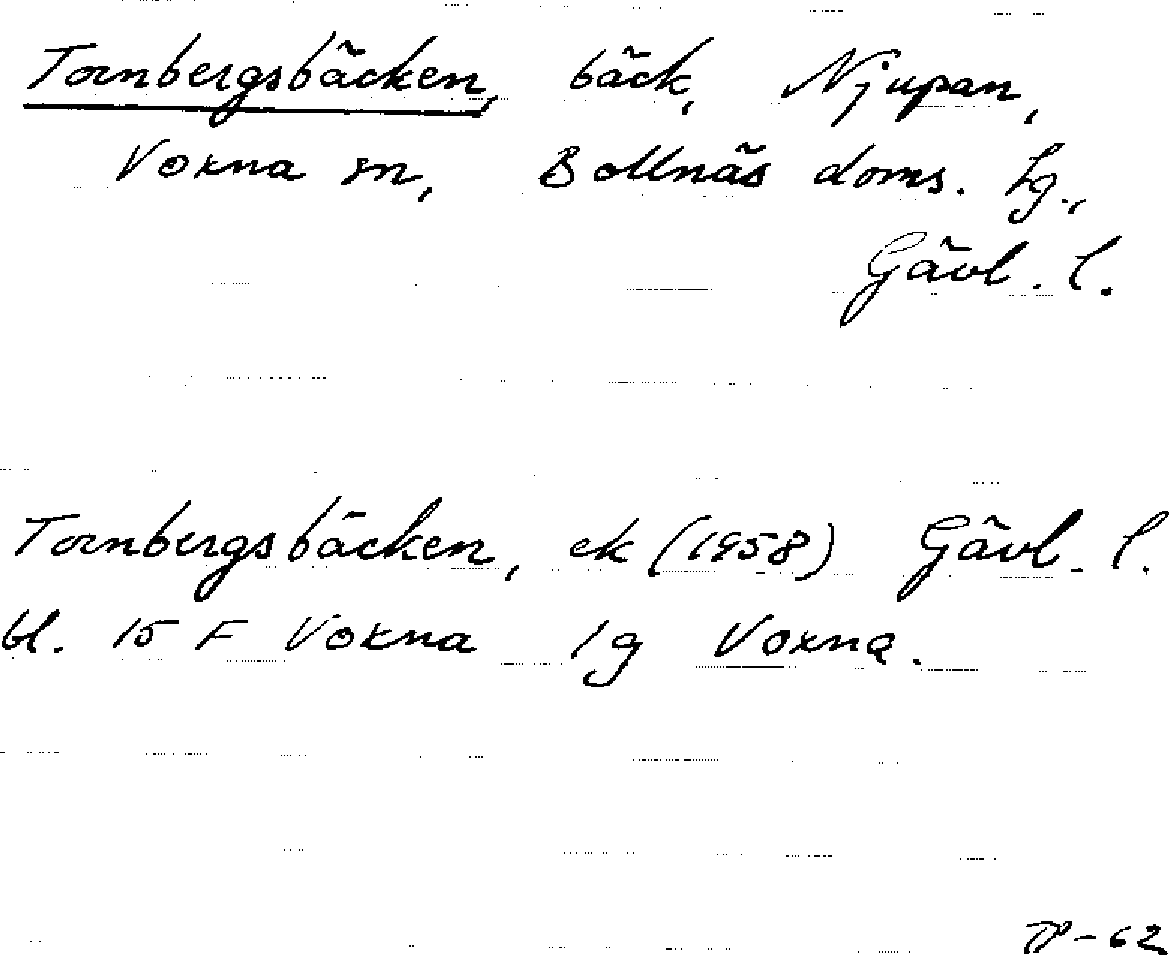 Tornbergsbäcken, bäck, Njupan,
Voxna sn, Bollnäs doms. lg.,
Gävl. l.
Tornbergsbäcken, ek (1958) Gävl. l.
bl. 15 F Voxna 1g Voxna.
TP-62